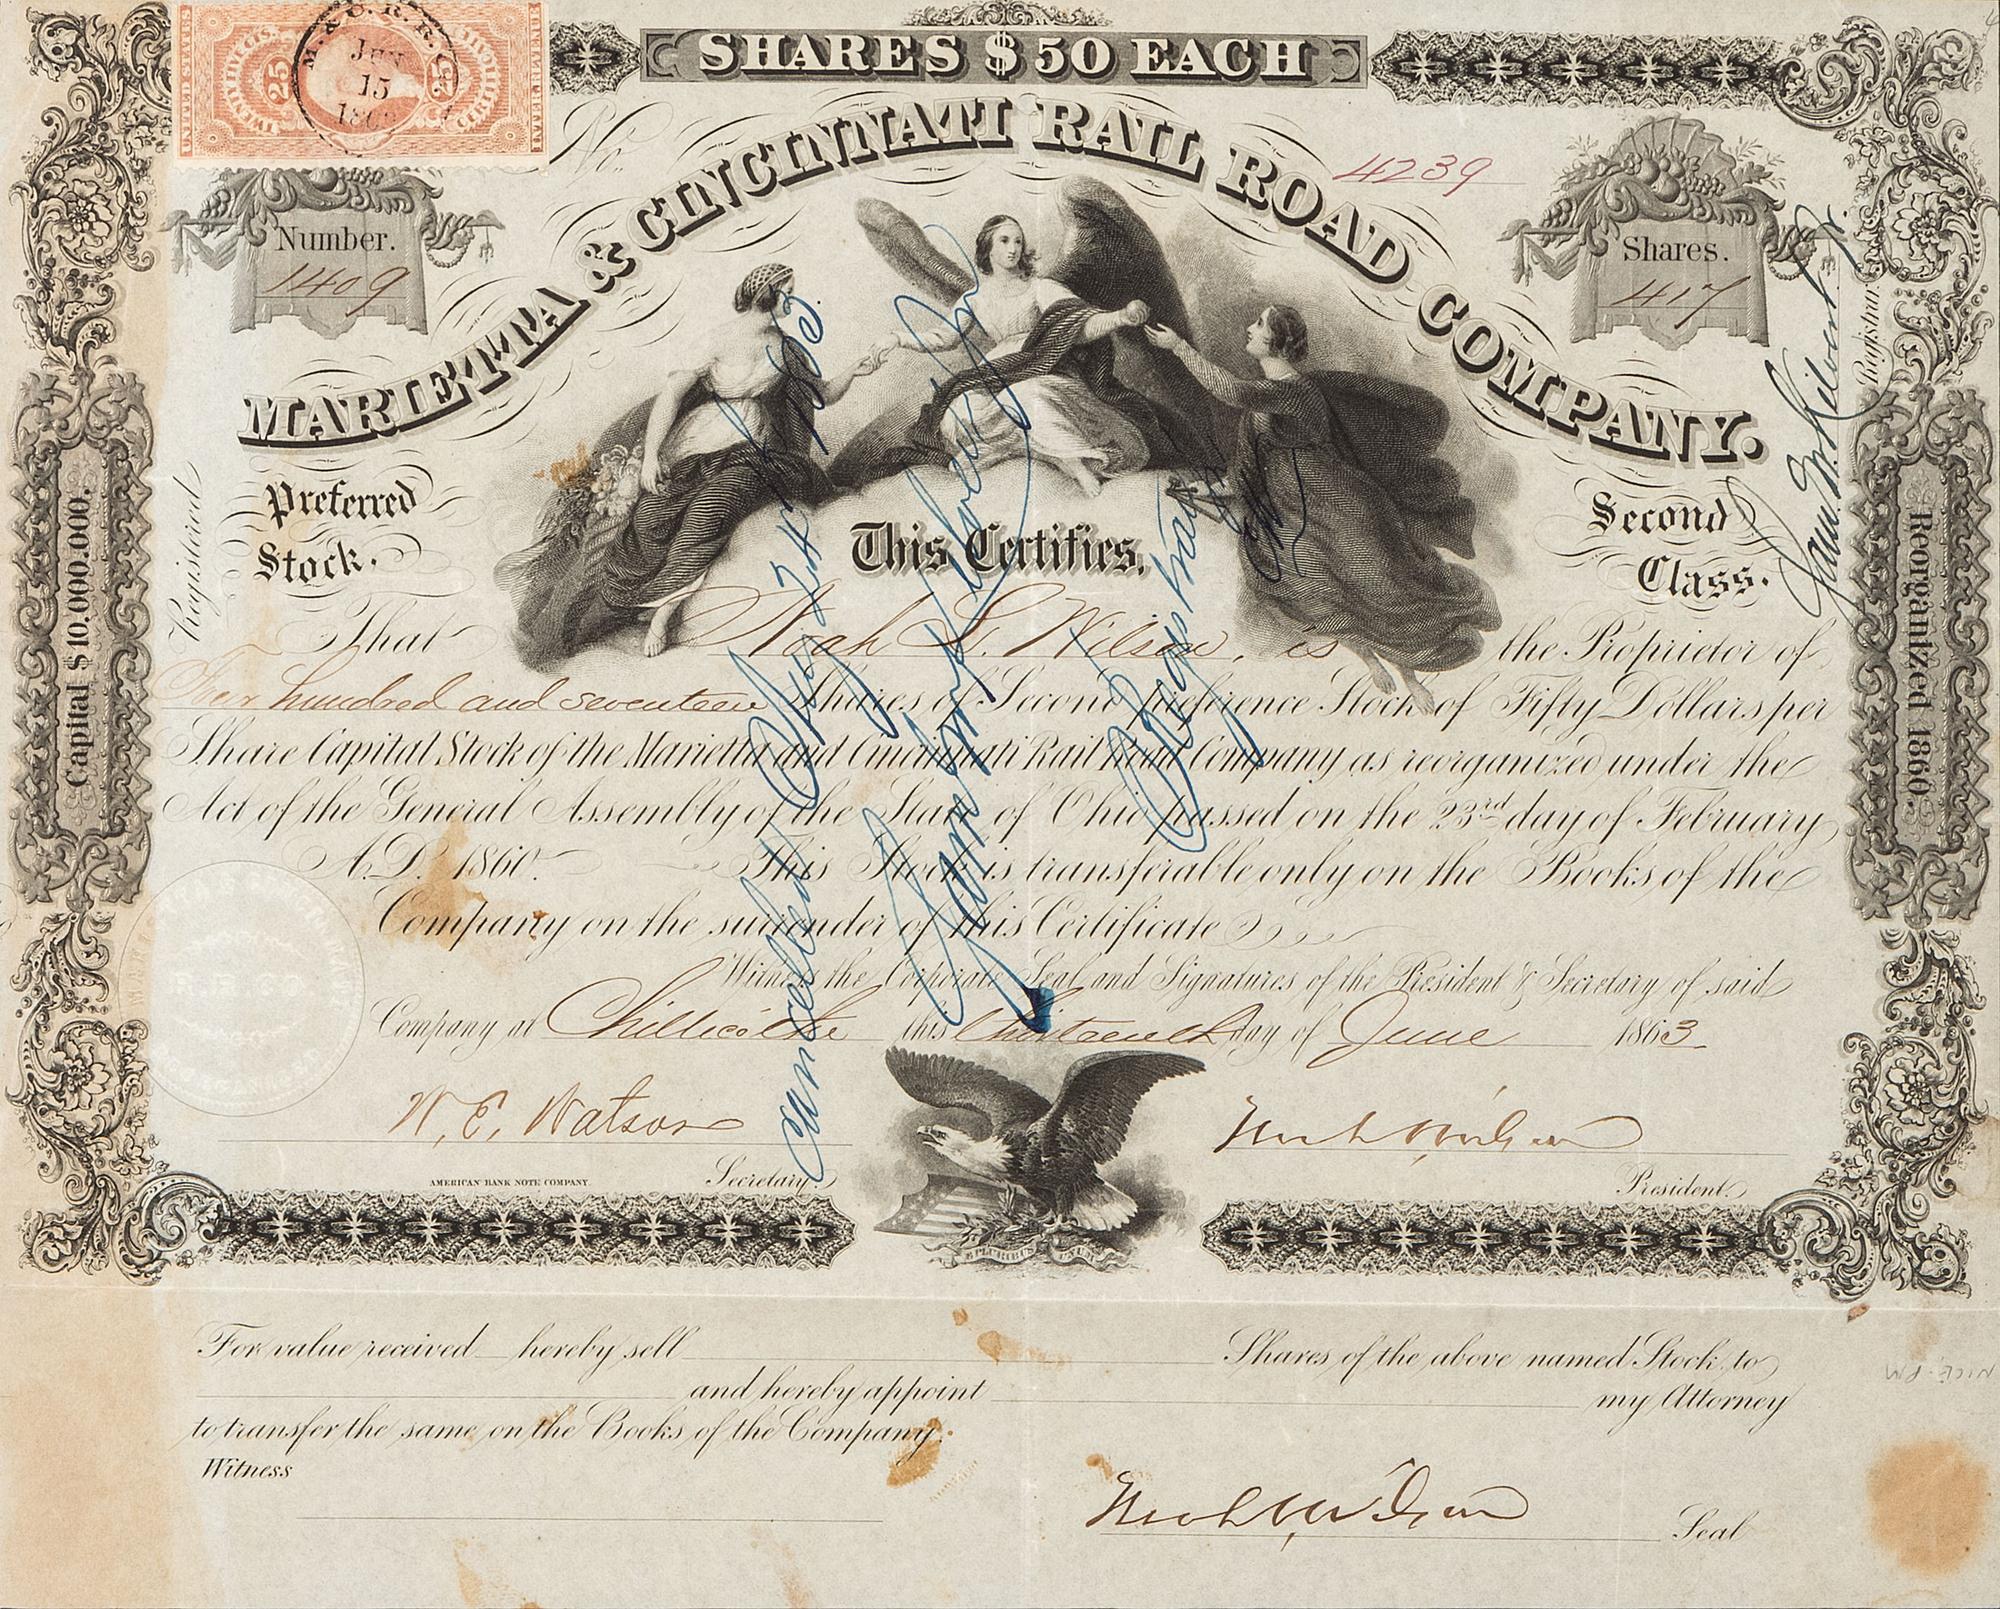 SHARES $50 EACH
UNITED STATES
INTER. REVENUE
TWENTY FIVE CTS.
25
25
M. & C. R. R. Co.
JUN
15
No. 4239
MARIETTA & CINCINNATI RAIL ROAD COMPANY.
Number.
1409
Shares.
417
Preferred Stock.
Second Class.
Capital $10.000.000.
Reorganized 1860.
Registered
Registrar
This Certifies,
That Noah L. Wilson, is the Proprietor of
Four hundred and seventeen Shares of Second preference Stock of Fifty Dollars per
Share Capital Stock of the Marietta and Cincinnati Rail Road Company as reorganized under the
Act of the General Assembly of the State of Ohio passed on the 23rd day of February
A.D. 1860. This Stock is transferable only on the Books of the
Company on the surrender of this Certificate
Witness the Corporate Seal and Signatures of the President & Secretary of said
Company at Chillicothe this thirteenth day of June 1863
W. E. Watson
Noah L Wilson
Secretary.
President.
AMERICAN BANK NOTE COMPANY.
E PLURIBUS UNUM
Cancelled Aug 24th 1863.
Registrar
For value received hereby sell Shares of the above named Stock, to
and hereby appoint my Attorney
to transfer the same on the Books of the Company.
Witness
Noah L Wilson
Seal